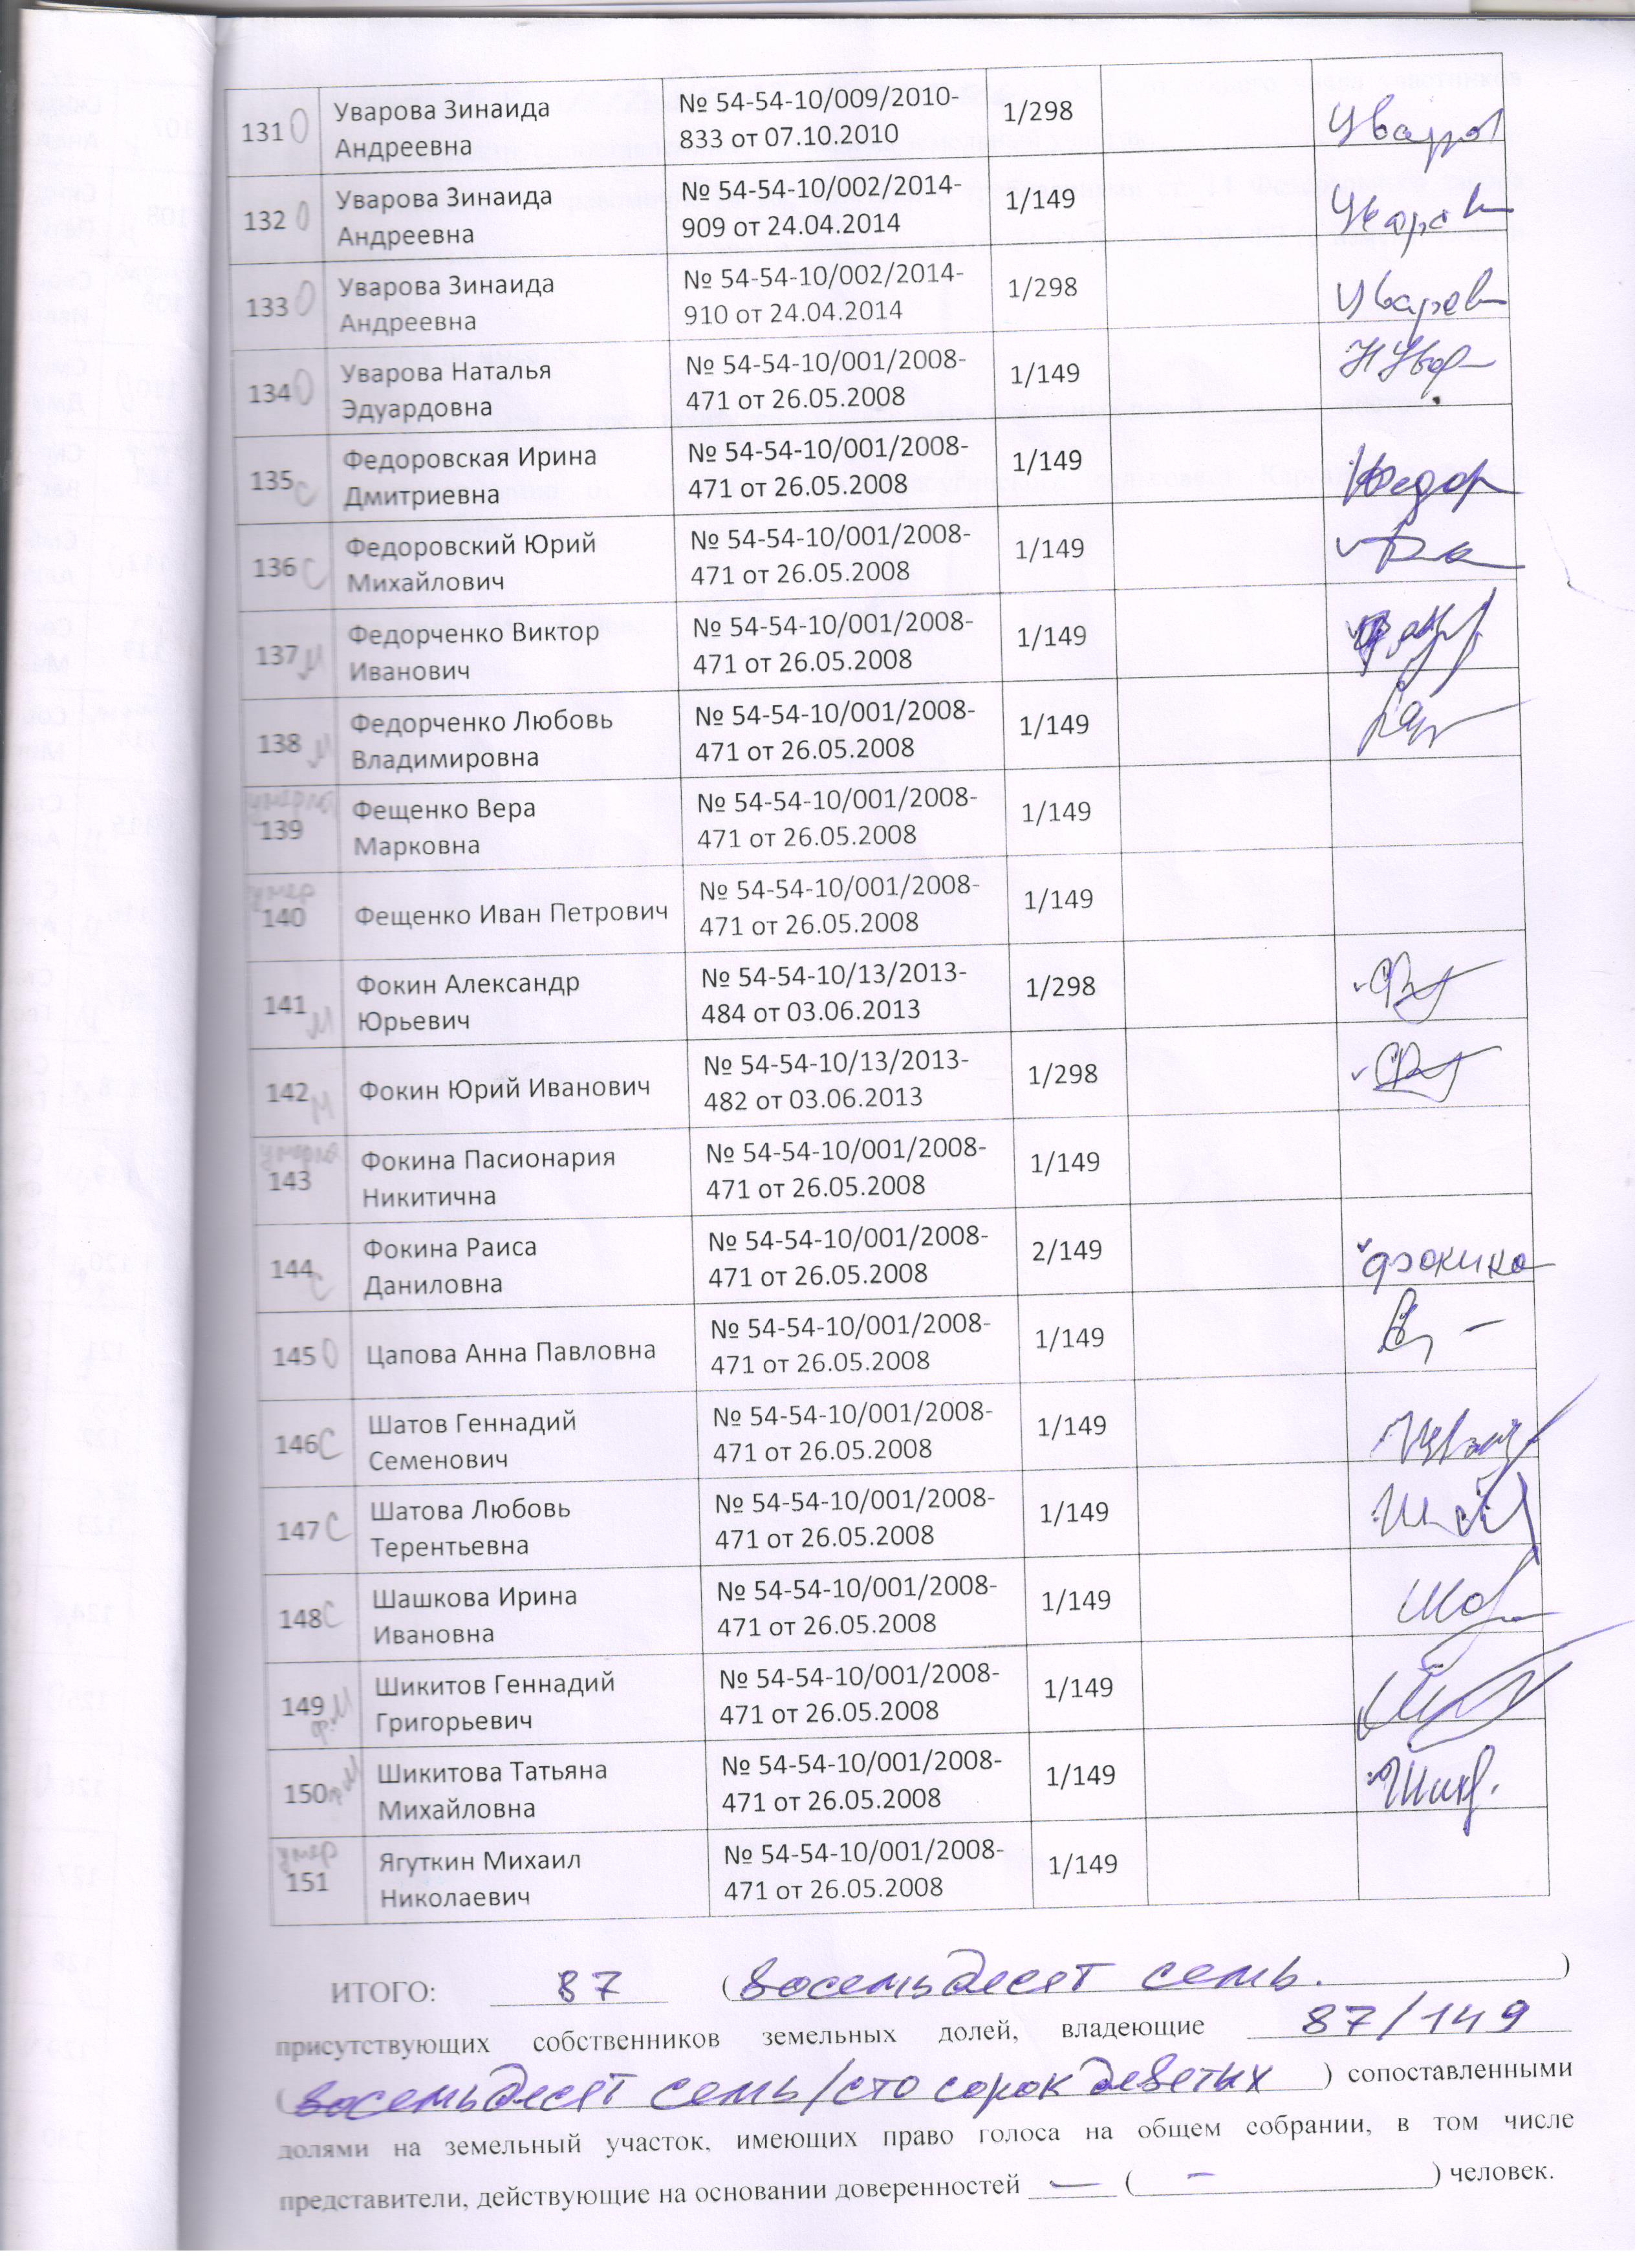 131 О Уварова Зинаида № 54-54-10/009/2010- 1/298 Уваров
Андреевна 833 от 07.10.2010
132 О Уварова Зинаида № 54-54-10/002/2014- 1/149
Андреевна 909 от 24.04.2014
133 О Уварова Зинаида № 54-54-10/002/2014- 1/298
Андреевна 910 от 24.04.2014
134 О Уварова Наталья № 54-54-10/001/2008- 1/149
Эдуардовна 471 от 26.05.2008
135 С Федоровская Ирина № 54-54-10/001/2008- 1/149
Дмитриевна 471 от 26.05.2008
136 С Федоровский Юрий № 54-54-10/001/2008- 1/149
Михайлович 471 от 26.05.2008
137 М Федорченко Виктор № 54-54-10/001/2008- 1/149
Иванович 471 от 26.05.2008
138 М Федорченко Любовь № 54-54-10/001/2008- 1/149
Владимировна 471 от 26.05.2008
умерла
139 Фещенко Вера № 54-54-10/001/2008- 1/149
Марковна 471 от 26.05.2008
умер
140 Фещенко Иван Петрович № 54-54-10/001/2008- 1/149
471 от 26.05.2008
141 М Фокин Александр № 54-54-10/13/2013- 1/298
Юрьевич 484 от 03.06.2013
142 М Фокин Юрий Иванович № 54-54-10/13/2013- 1/298
482 от 03.06.2013
умерла
143 Фокина Пасионария № 54-54-10/001/2008- 1/149
Никитична 471 от 26.05.2008
144 С Фокина Раиса № 54-54-10/001/2008- 2/149 Фокина
Даниловна 471 от 26.05.2008
145 О Цапова Анна Павловна № 54-54-10/001/2008- 1/149
471 от 26.05.2008
146 С Шатов Геннадий № 54-54-10/001/2008- 1/149
Семенович 471 от 26.05.2008
147 С Шатова Любовь № 54-54-10/001/2008- 1/149
Терентьевна 471 от 26.05.2008
148 С Шашкова Ирина № 54-54-10/001/2008- 1/149
Ивановна 471 от 26.05.2008
149 М Шикитов Геннадий № 54-54-10/001/2008- 1/149
Григорьевич 471 от 26.05.2008
150 М Шикитова Татьяна № 54-54-10/001/2008- 1/149
Михайловна 471 от 26.05.2008
умер
151 Ягуткин Михаил № 54-54-10/001/2008- 1/149
Николаевич 471 от 26.05.2008
ИТОГО: 87 (восемьдесят семь.)
присутствующих собственников земельных долей, владеющие 87/149
(восемьдесят семь/сто сорок девятых) сопоставленными
долями на земельный участок, имеющих право голоса на общем собрании, в том числе
представители, действующие на основании доверенностей — ( – ) человек.